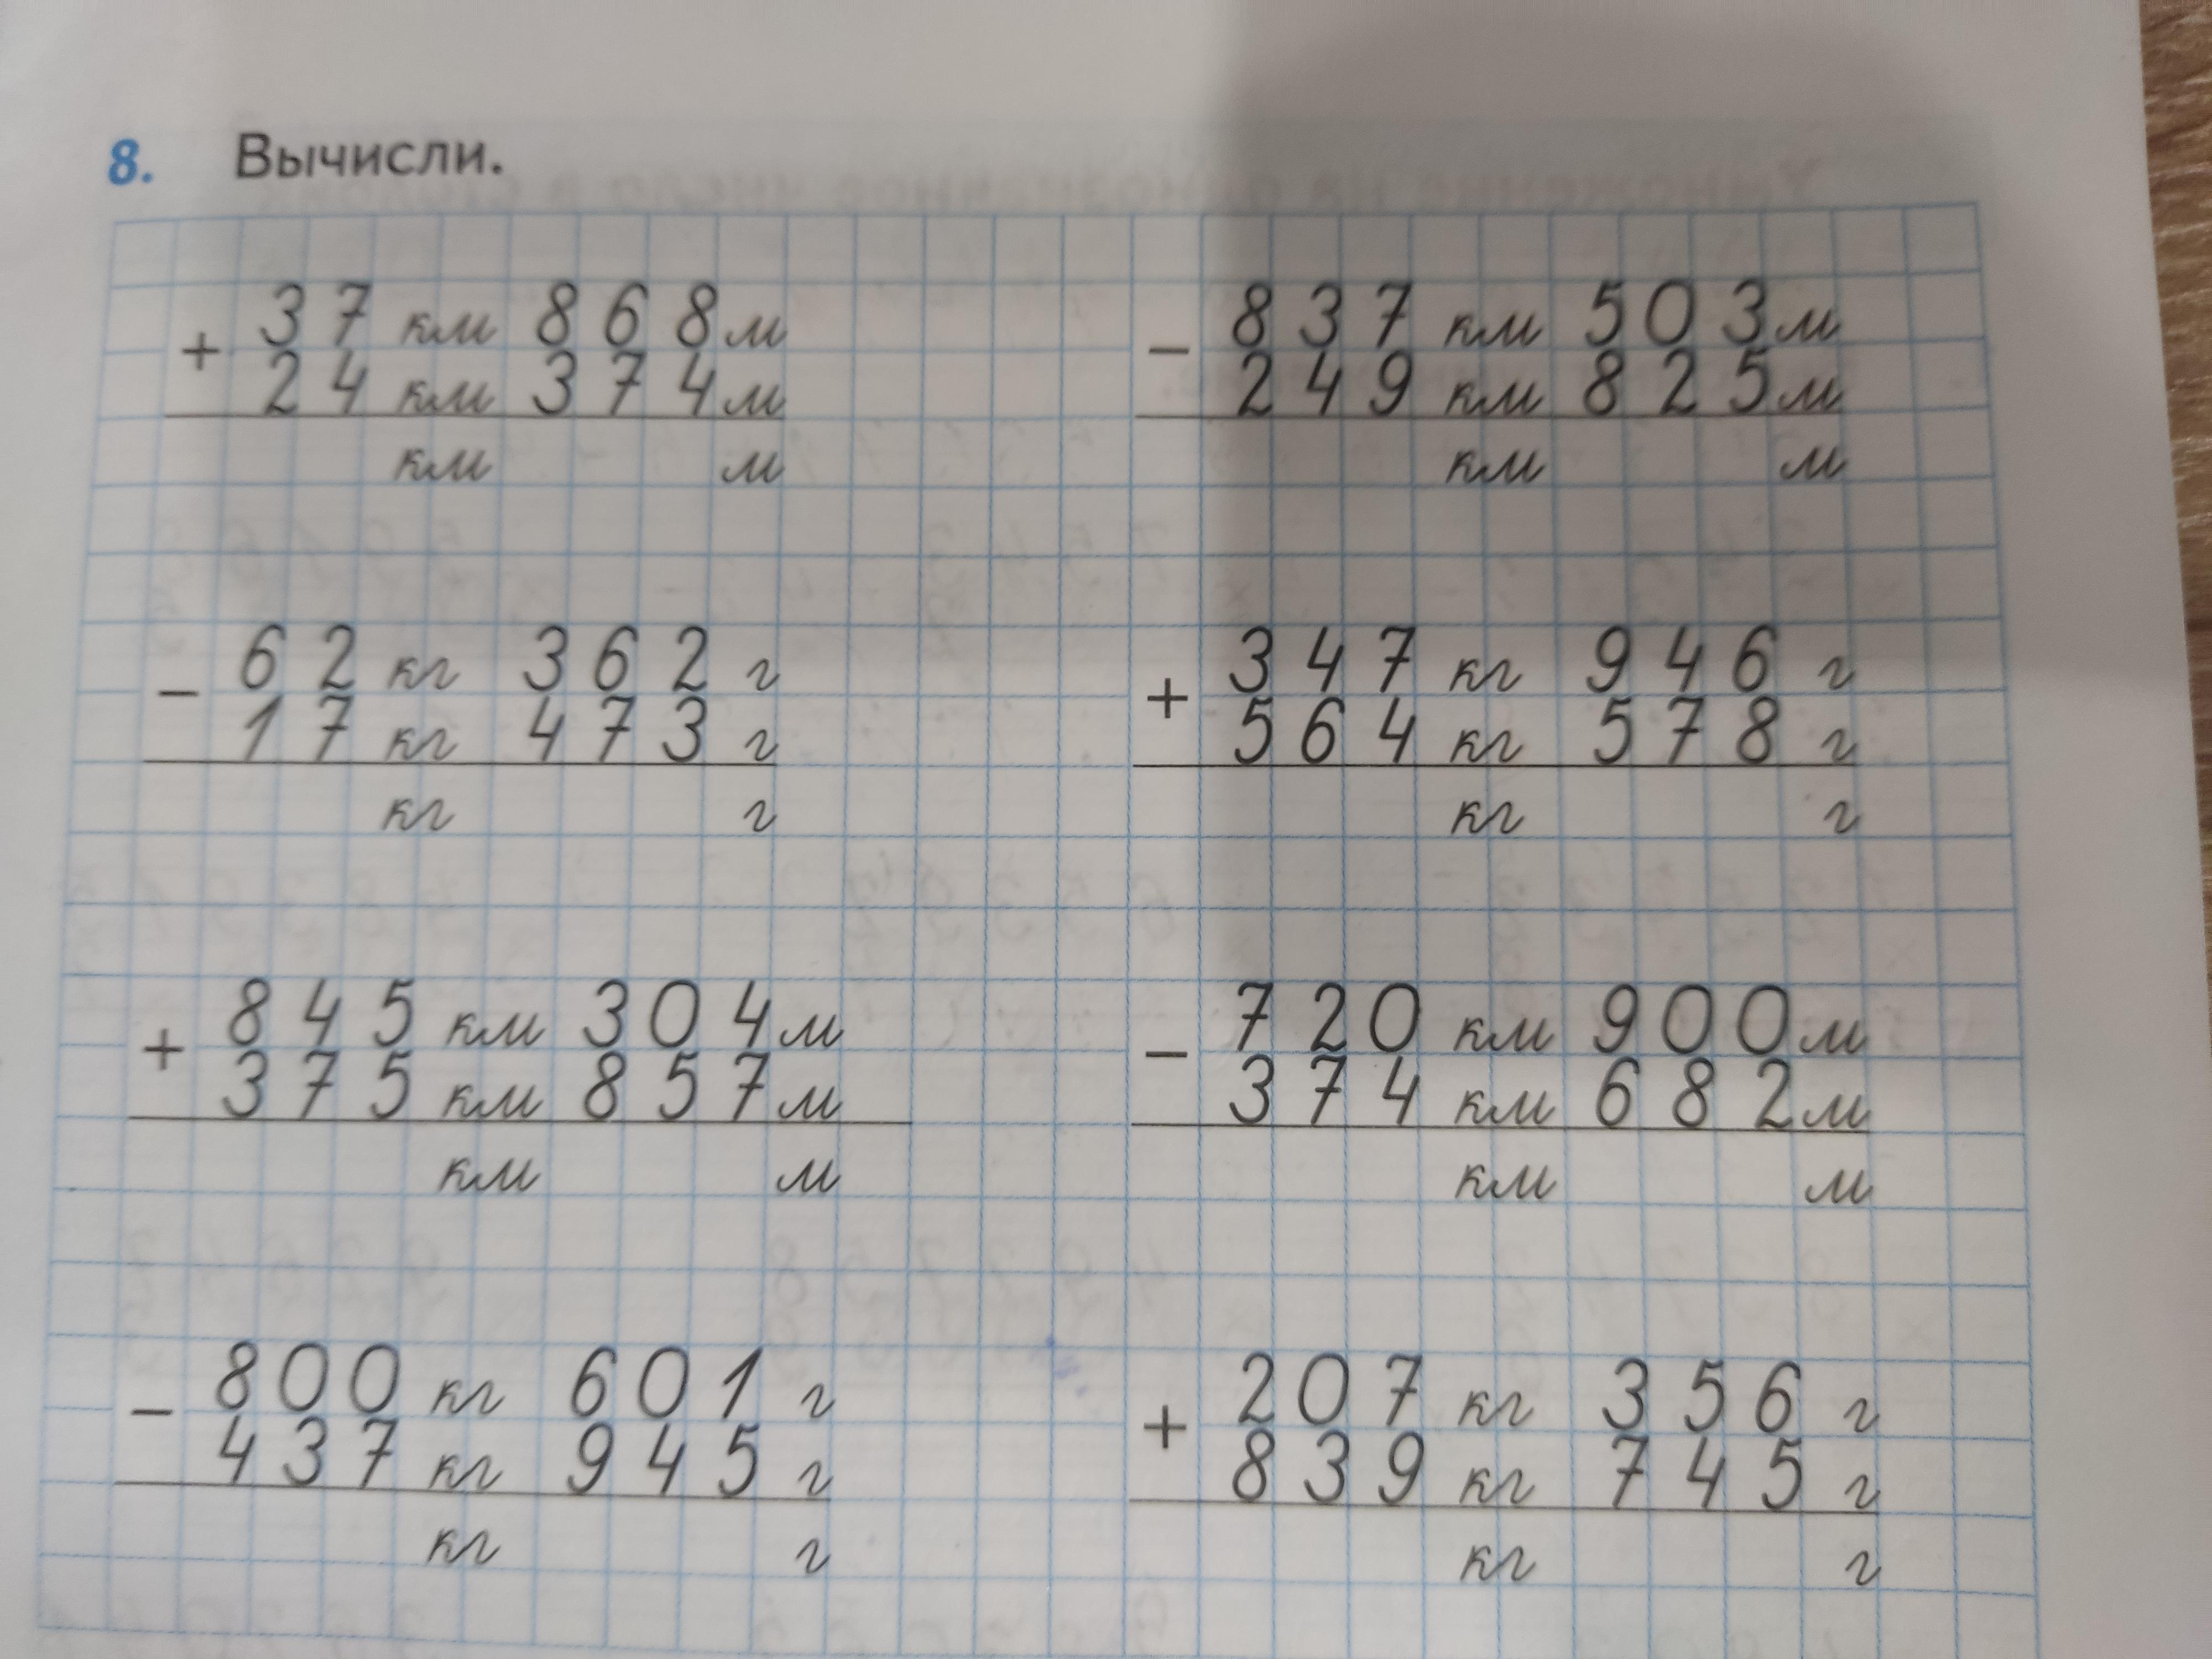 8. Вычисли.
+ 37 км 868 м
24 км 374 м
км м
− 837 км 503 м
249 км 825 м
км м
− 62 кг 362 г
17 кг 473 г
кг г
+ 347 кг 946 г
564 кг 578 г
кг г
+ 845 км 304 м
375 км 857 м
км м
− 720 км 900 м
374 км 682 м
км м
− 800 кг 601 г
437 кг 945 г
кг г
+ 207 кг 356 г
839 кг 745 г
кг г